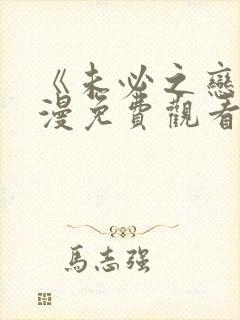 《未必之戀
漫免費觀看
馬志強